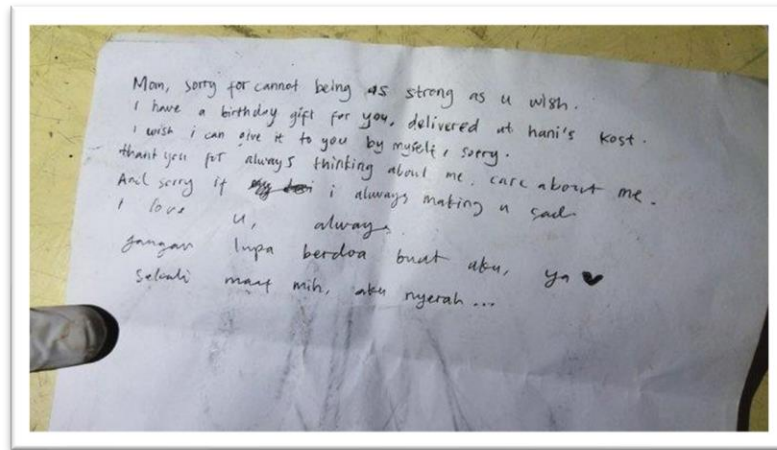 Mom, sorry for cannot being as strong as u wish.
I have a birthday gift for you, delivered at hani's kost.
I wish i can give it to you by myself, sorry.
thank you for always thinking about me. care about me.
And sorry if i always making u sad
I love u, always.
jangan lupa berdoa buat aku, ya ♥
Sekali maaf mih, aku nyerah...